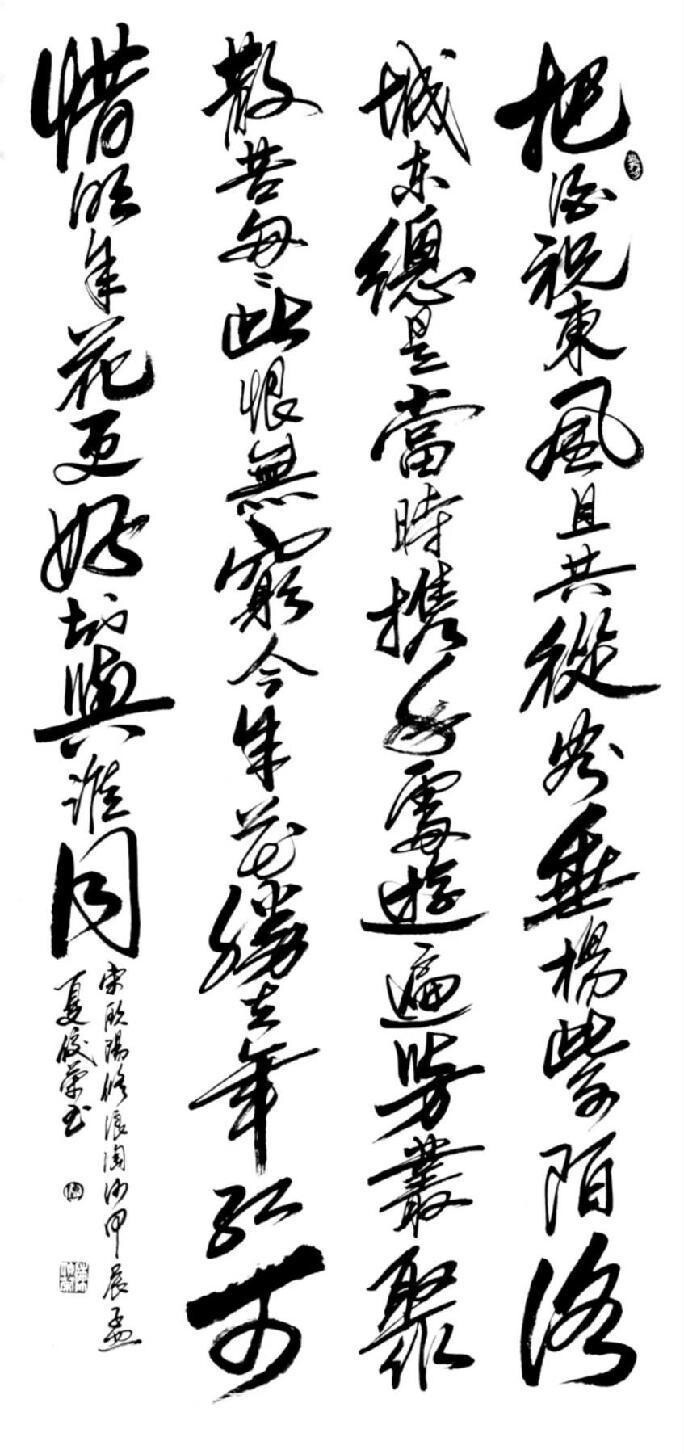 把酒祝東風且共從容垂楊紫陌洛
城东總是當時携手處遊遍芳叢聚
散苦匆〻此恨無窮今年花勝去年紅可
惜明年花更好知與誰同
宋欧陽修浪淘沙甲辰孟
夏俊榮书